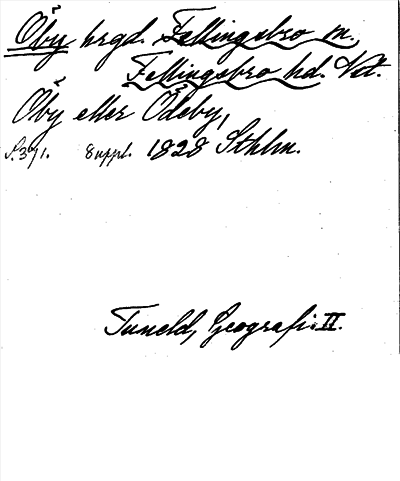 Öby hrgd. Fellingsbro sn.
Fellingsbro hd. Vstm.
Öby eller Ödeby,
S. 371. 8 uppl. 1828 Sthlm.
Tuneld, Geografi. II.